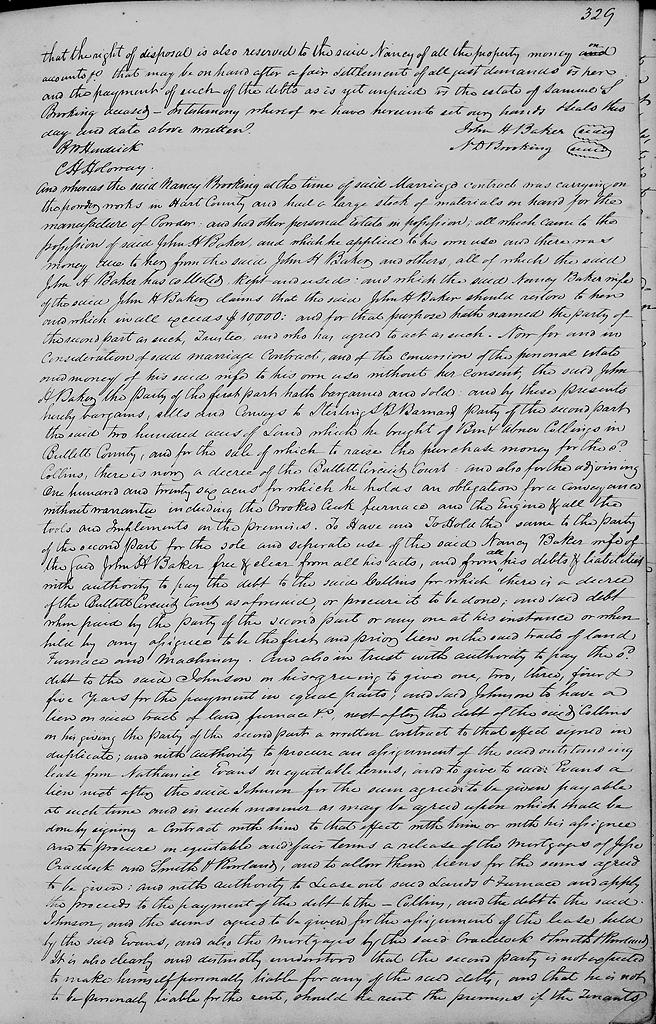 329
that the right of disposal is also reserved to the said Nancy of all the property money on and
accounts &c that may be on hand after a fair settlement of all just demands vs her
and the payment of such of the debts as is yet unpaid vs the estate of Samuel S
Brooking deceased - In testimony whereof we have hereunto set our hands & seals this
day and date above written. John H Baker (seal)
Hendrick N D Brooking (seal)
C H Holloway.
And whereas the said Nancy Brooking at the time of said Marriage contract was carrying on
the powder works in Hart County and had a large stock of materials on hand for the
manufacture of Powder: and had other personal Estate in possession; all which came to the
possession of said John H Baker, and which he applied to his own use and there was
money due to her from the said John H Baker and others, all of which the said
John H Baker has collected, kept and used: and which the said Nancy Baker wife
of the said John H Baker claims that the said John H Baker should restore to her
and which in all exceeds $10000: and for that purpose hath named the party of
the second part as such, Trustee, and who has agreed to act as such. Now for and in
Consideration of said marriage Contract, and of the conversion of the personal estate
and money of his said wife to his own use without her consent, the said John
H Baker the party of the first part hath bargained and sold: and by these presents
hereby bargains, sells and Conveys to Sterling B Barnard party of the second part
the said two hundred acres of Land which he bought of Ben & Abner Collings in
Bullitt County, and for the sale of which to raise the purchase money for the sd.
Collins, there is now a decree of the Bullitt Circuit Court: and also for the adjoining
One hundred and twenty six acres for which he holds an obligation for a Conveyance
without warrantee including the Crooked Creek furnace and the Engine & all the
tools and Implements on the premises. To Have and To Hold the same to the party
of the second part for the sole and separate use of the said Nancy Baker wife of
the said John H Baker free & clear from all his acts, and from all his debts & liabilities
with authority to pay the debt to the said Collins for which there is a decree
of the Bullitt Circuit Court as aforesaid, or procure it to be done; and said debt
when paid by the party of the second part or any one at his instance or when
held by any assignee to be the first and prior lien on the said tracts of land
Furnace and Machinery. And also in trust with authority to pay the sd.
debt to the said Johnson on his agreeing to give one, two, three, four &
five Years for the payment in equal parts, and said Johnson to have a
lien on said tract of land furnace &c, next after the debt of the said Collins
on his giving the party of the second part a written contract to that effect signed in
duplicate; and with authority to procure an assignment of the said outstanding
lease from Nathaniel Evans on equitable terms, and to give to said Evans a
lien next after the said Johnson for the sum agreed to be given payable
at such time and in such manner as may be agreed upon which shall be
done by signing a Contract with him to that effect with him or with his assignee
and to procure on equitable and fair terms a release of the mortgages of Jesse
Craddock and Smith & Rowland, and to allow them liens for the sums agreed
to be given: and with authority to Lease out said Lands & Furnace and apply
the proceeds to the payment of the debt to the - Collins, and the debt to the said
Johnson, and the sums agreed to be given for the assignment of the lease held
by the said Evans, and also the mortgages by the said Craddock & Smith & Rowland
It is also clearly and distinctly understood that the second party is not expected
to make himself personally liable for any of the said debts, and that he is not
to be personally liable for the rent, should he rent the premises if the Tenants